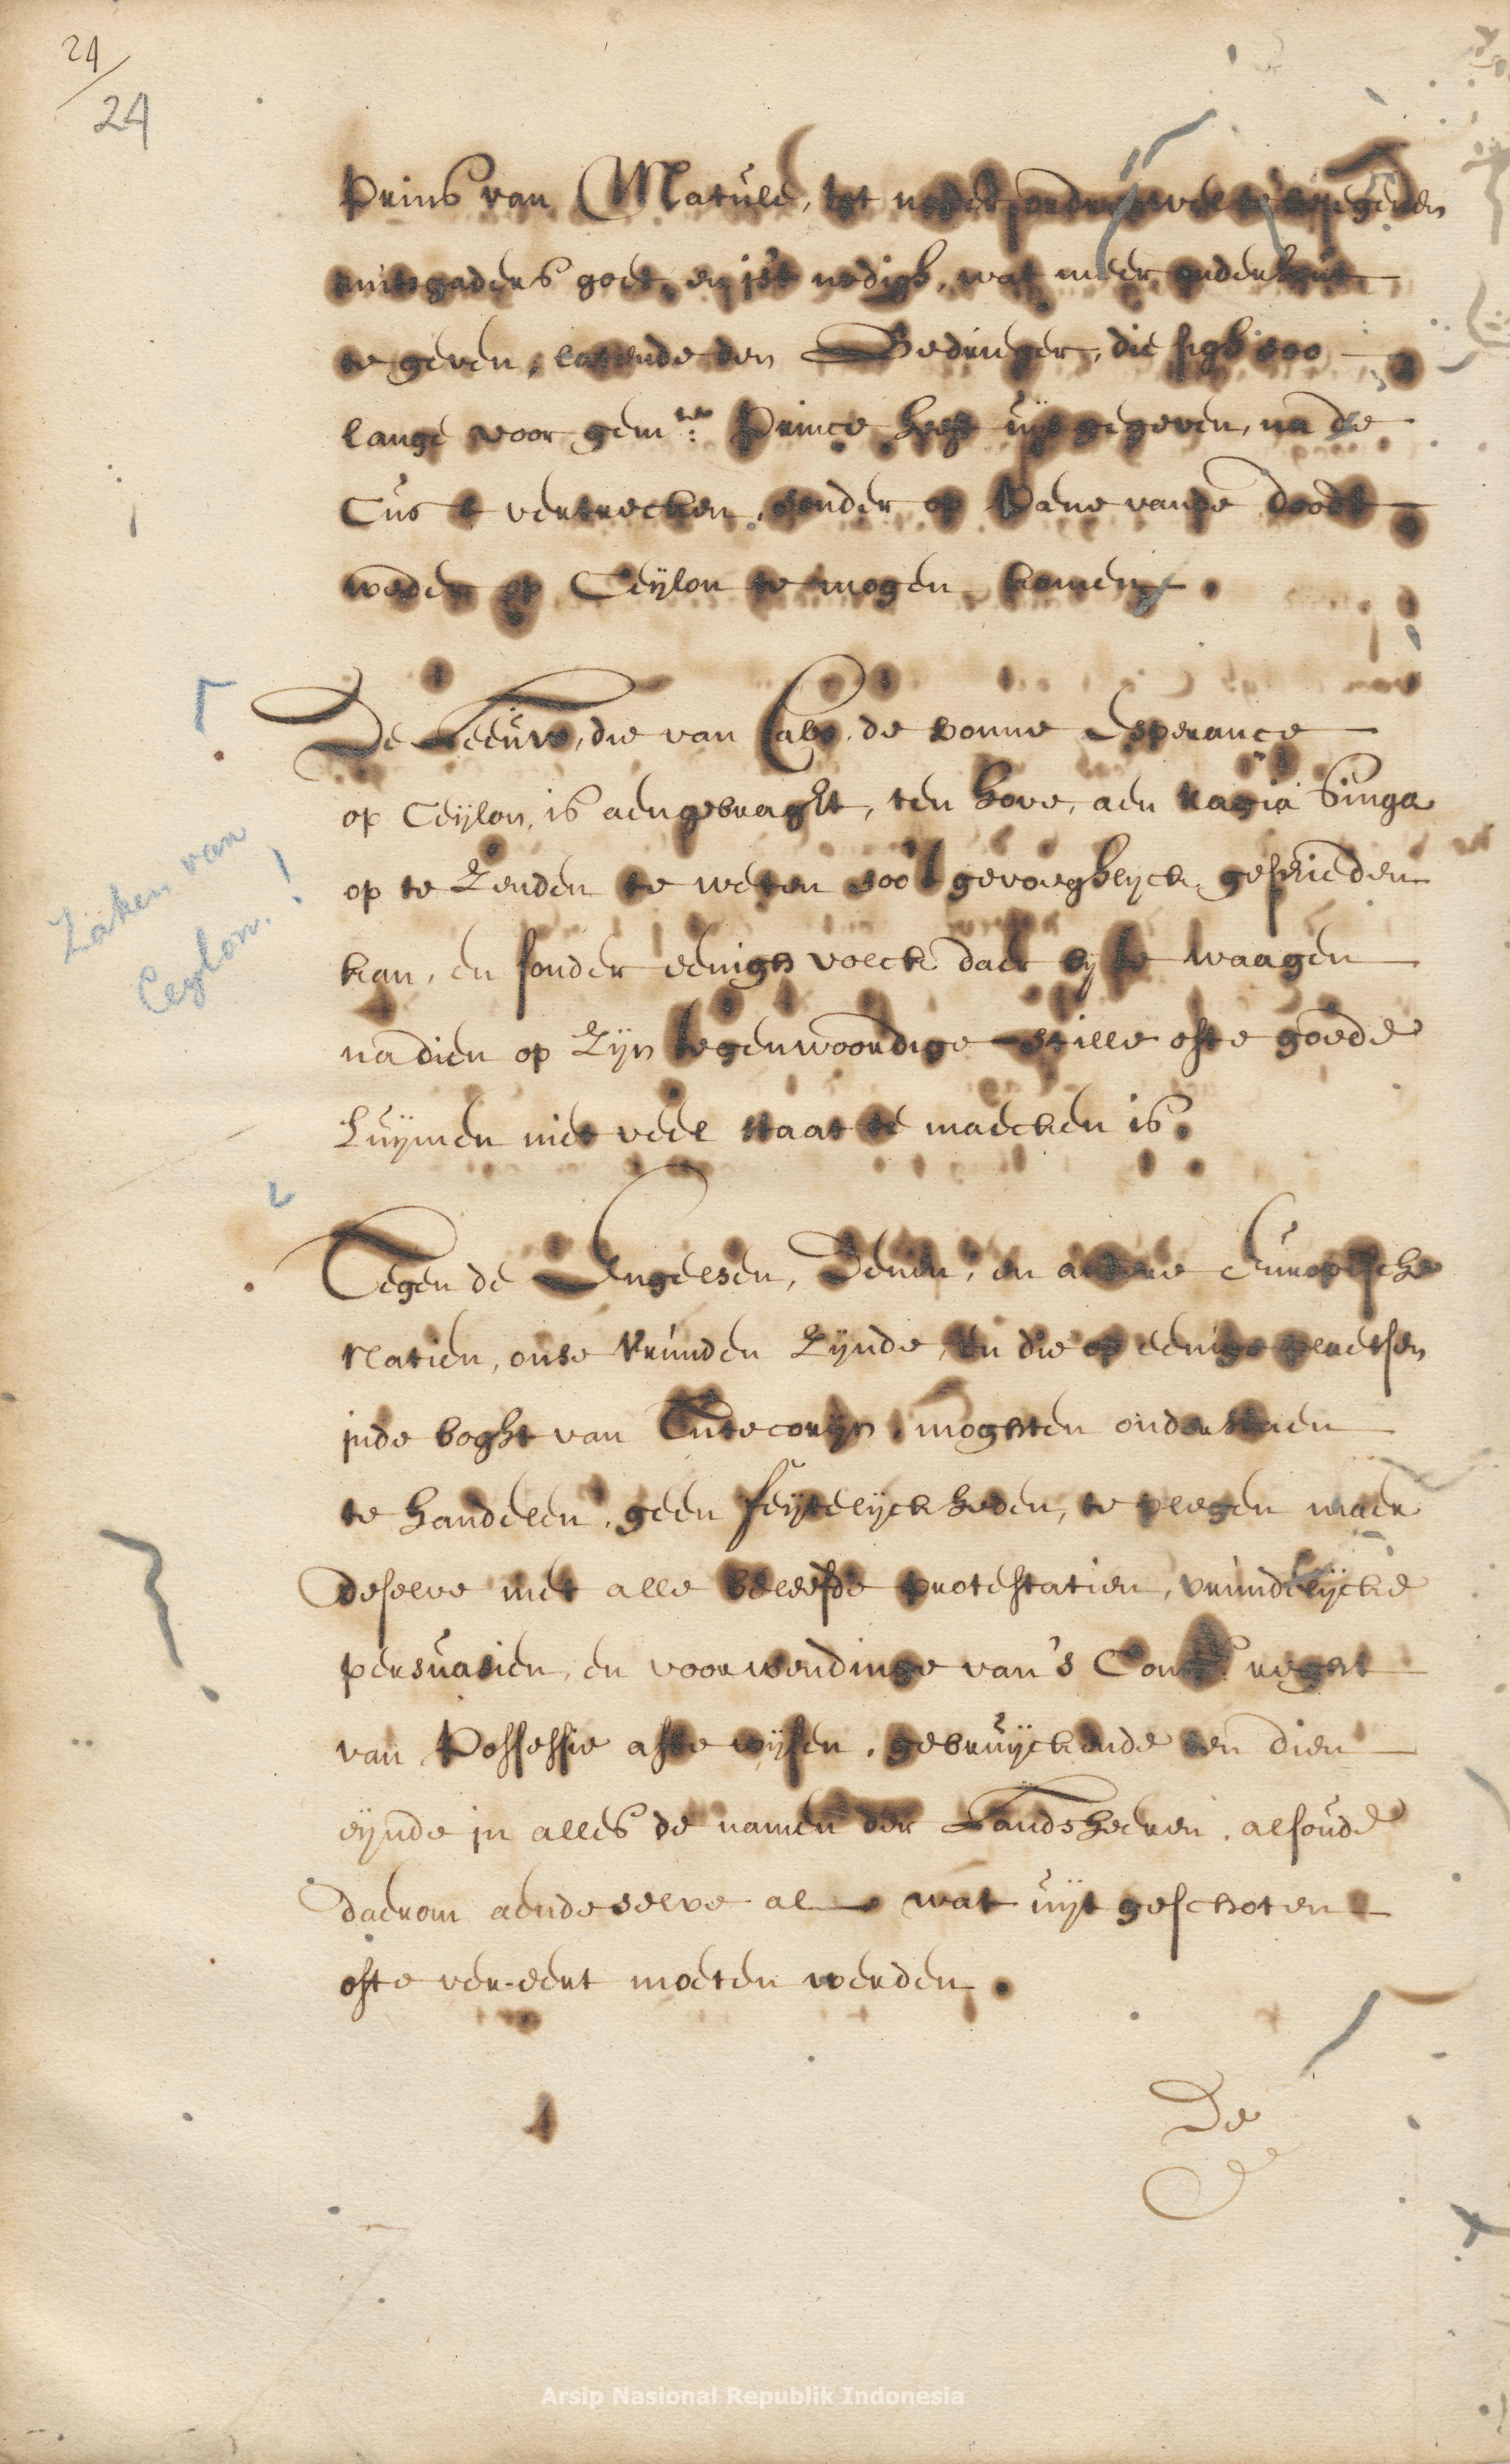 24/
24
Prins van Matule, tot nader order wel te bejegenen
mitsgaders goet, en is't nodigh, wat meer onderhout
te geven, latende den Bedrieger, die sigh soo
lange voor gem:te Prince heeft uijtgegeven, na de
Cust vertrecken, sonder op Pene vande doodt
weder op Ceijlon te mogen komen.
De Leeuw, die van Cabo de bonne Esperance
op Ceijlon, is aengebraght, ten hove, aen Ragia Singa
op te Zenden te weten soo 't gevoeghlijck geschieden
kan, en sonder eenigh volck daer bij te waagen
nadien op Zijn tegenwoordige stille ofte goede
Luijmen niet veel staat te maecken is.
Zaken van
Ceylon!
Tegen de Engelsen, Denen, en andere Europische
Natien, onse Vrunden Zijnde, en die op eenige plaetsen
inde boght van Tutecorijn, moghten onderstaen
te handelen, geen feijtelijckheden, te plegen maer
deselve met alle beleefde protestatien, vrundelijcke
persuasien, en voorwendinge van 's Comp:s reght
van Possessie afte wijsen, gebruijckende ten dien
eijnde in alles de namen der Landsheeren, alsoude
daerom aendeselve al wat uijt geschoten
ofte ver-eert moeten werden.
De
Arsip Nasional Republik Indonesia